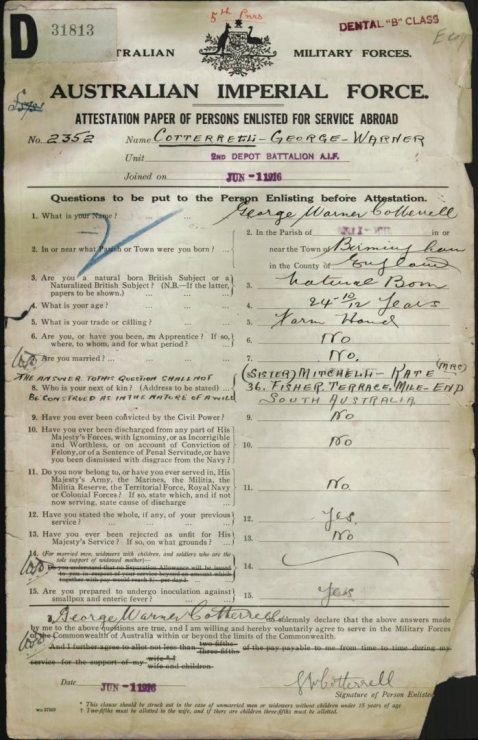 D 31813
5th Pnrs
DENTAL "B" CLASS
TRALIAN MILITARY FORCES.
AUSTRALIAN IMPERIAL FORCE.
ATTESTATION PAPER OF PERSONS ENLISTED FOR SERVICE ABROAD
No. 2352 Name COTTERRELL - GEORGE - WARNER
Unit 2ND DEPOT BATTALION A.I.F.
Joined on JUN -1 1916
Questions to be put to the Person Enlisting before Attestation.
1. What is your Name? ... ... George Warner Cotterrell
2. In or near what Parish or Town were you born? ... 2. In the Parish of in or
near the Town of Birmingham
in the County of England
3. Are you a natural born British Subject or a
Naturalized British Subject? (N.B.—If the latter,
papers to be shown.) 3. Natural Born
4. What is your age? ... ... 4. 24 10/12 Years
5. What is your trade or calling? ... 5. Farm Hand
6. Are you, or have you been, an Apprentice? If so,
where, to whom, and for what period? 6. No
7. Are you married? ... 7. No,
THE ANSWER TO THIS QUESTION SHALL NOT
8. Who is your next of kin? (Address to be stated)
BE CONSTRUED AS IN THE NATURE OF A WILL
8. (SISTER) MITCHELL - KATE (MRS)
36, FISHER TERRACE, MILE-END
SOUTH AUSTRALIA
9. Have you ever been convicted by the Civil Power? 9. No
10. Have you ever been discharged from any part of His
Majesty's Forces, with Ignominy, or as Incorrigible
and Worthless, or on account of Conviction of
Felony, or of a Sentence of Penal Servitude, or have
you been dismissed with disgrace from the Navy? 10. No
11. Do you now belong to, or have you ever served in, His
Majesty's Army, the Marines, the Militia, the
Militia Reserve, the Territorial Force, Royal Navy
or Colonial Forces? If so, state which, and if not
now serving, state cause of discharge 11. No
12. Have you stated the whole, if any, of your previous
service? ... 12. Yes.
13. Have you ever been rejected as unfit for His
Majesty's Service? If so, on what grounds? 13. No
14. (For married men, widowers with children, and soldiers who are the
sole support of widowed mother)—
Do you understand that no Separation Allowance will be issued
to you in respect of your service beyond an amount which
together with pay would reach 8/- per day? 14.
15. Are you prepared to undergo inoculation against
smallpox and enteric fever? 15. Yes
I, George Warner Cotterrell do solemnly declare that the above answers made
by me to the above questions are true, and I am willing and hereby voluntarily agree to serve in the Military Forces
of the Commonwealth of Australia within or beyond the limits of the Commonwealth.
And I further agree to allot not less than two-fifths three-fifths of the pay payable to me from time to time during my
service for the support of my wife wife and children.
Date JUN -1 1916
G W Cotterrell
Signature of Person Enlisted
* This clause should be struck out in the case of unmarried men or widowers without children under 18 years of age
† Two-fifths must be allotted to the wife, and if there are children three-fifths must be allotted.